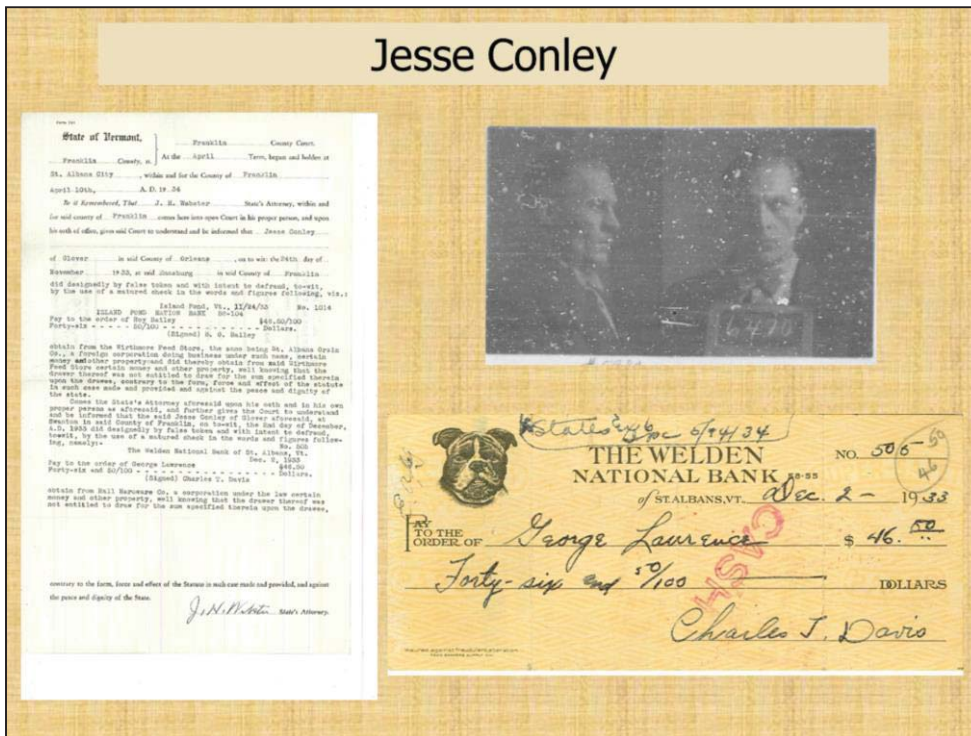 Jesse Conley
State of Vermont,
Franklin County Court.
Franklin County, ss. At the April Term, begun and holden at
St. Albans City, within and for the County of Franklin
April 10th, A. D. 19 34
Be it Remembered, That J. H. Webster State's Attorney, within and
for said county of Franklin comes here into open Court in his proper person, and upon
his oath of office, gives said Court to understand and be informed that Jesse Conley
of Glover in said County of Orleans, on to wit: the 24th day of
November 19 33, at said in said County of Franklin
did designedly by false token and with intent to defraud, to-wit,
by the use of a matured check in the words and figures following, viz.:
Island Pond, Vt., 11/24/33 No. 1014
ISLAND POND NATION BANK 58-104
Pay to the order of Roy Bailey $46.50/100
Forty-six - - - - - 50/100 - - - - - - - - - - Dollars.
(Signed) Bailey
obtain from the Wirthmore Feed Store, the same being St. Albans Grain
Co., a foreign corporation doing business under such name, certain
money another property and did thereby obtain from said Wirthmore
Feed Store certain money and other property, well knowing that the
drawer thereof was not entitled to draw for the sum specified therein
upon the drawee, contrary to the form, force and effect of the statute
in such case made and provided and against the peace and dignity of
the state.
Comes the State's Attorney aforesaid upon his oath and in his own
proper person as aforesaid, and further gives the Court to understand
and be informed that the said Jesse Conley of Glover aforesaid, at
Swanton in said County of Franklin, on to-wit, the 2nd day of December,
A.D. 1933 did designedly by false token and with intent to defraud,
to-wit, by the use of a matured check in the words and figures follow-
ing, namely:-
No. 505
The Welden National Bank of St. Albans, Vt.
Dec. 2, 1933
Pay to the order of George Lawrence $46.50
Forty-six and 50/100 - - - - - - - - - - - - Dollars.
(Signed) Charles T. Davis
obtain from Hall Hardware Co. a corporation under the law certain
money and other property, well knowing that the drawer thereof was
not entitled to draw for the sum specified therein upon the drawee,
contrary to the form, force and effect of the Statute in such case made and provided, and against
the peace and dignity of the State.
J. H. Webster State's Attorney.
States 5/24/34
THE WELDEN
NATIONAL BANK 58-55
of ST. ALBANS, VT. Dec. 2 - 1933
NO. 505
46 50
PAY TO THE ORDER OF George Lawrence $ 46. 50
Forty-six and 50/100 DOLLARS
CASH
Charles T. Davis